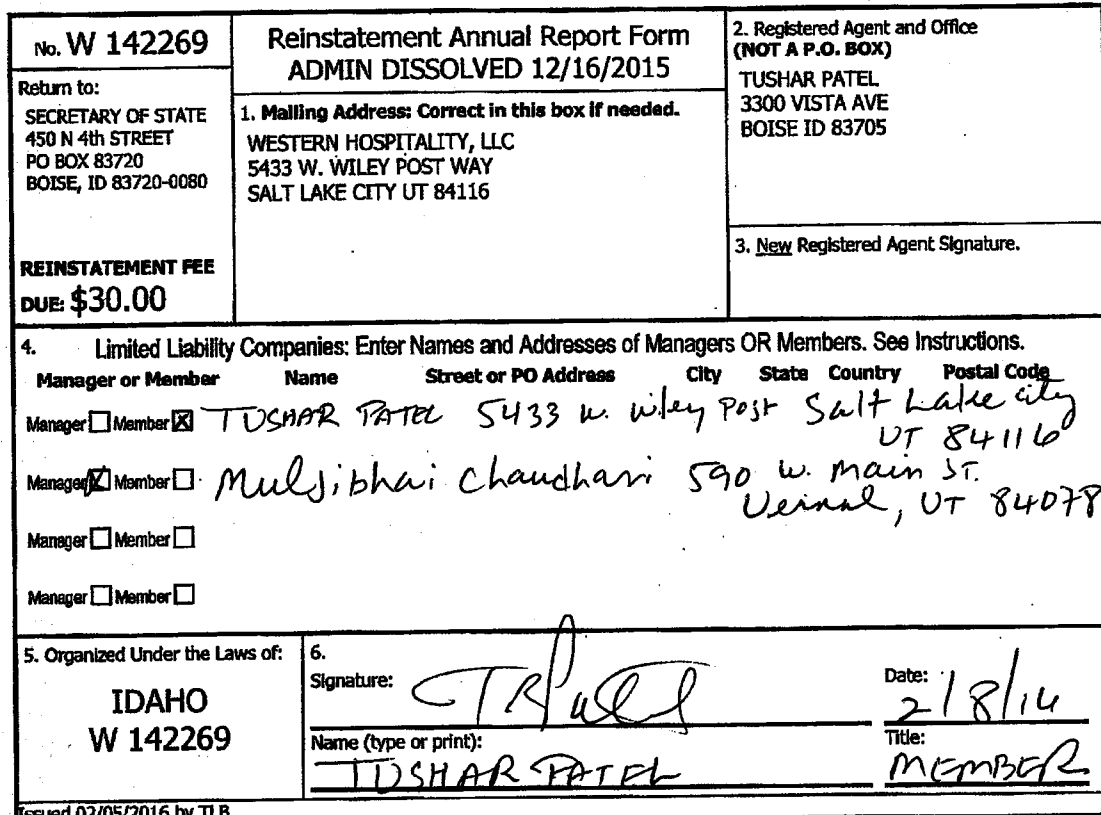 No. W 142269
Return to:
SECRETARY OF STATE
450 N 4th STREET
PO BOX 83720
BOISE, ID 83720-0080
REINSTATEMENT FEE
DUE: $30.00
Reinstatement Annual Report Form
ADMIN DISSOLVED 12/16/2015
1. Mailing Address: Correct in this box if needed.
WESTERN HOSPITALITY, LLC
5433 W. WILEY POST WAY
SALT LAKE CITY UT 84116
2. Registered Agent and Office
(NOT A P.O. BOX)
TUSHAR PATEL
3300 VISTA AVE
BOISE ID 83705
3. New Registered Agent Signature.
4. Limited Liability Companies: Enter Names and Addresses of Managers OR Members. See Instructions.
Manager or Member Name Street or PO Address City State Country Postal Code
Manager Member X TUSHAR PATEL 5433 W. Wiley Post Salt Lake city
UT 84116
Manager X Member Muljibhai Chaudhari 590 W. Main ST.
Vernal, UT 84078
Manager Member
Manager Member
5. Organized Under the Laws of:
IDAHO
W 142269
6.
Signature: TRPatel
Date: 2/8/16
Name (type or print):
TUSHAR PATEL
Title:
MEMBER
Issued 02/05/2016 by TLB